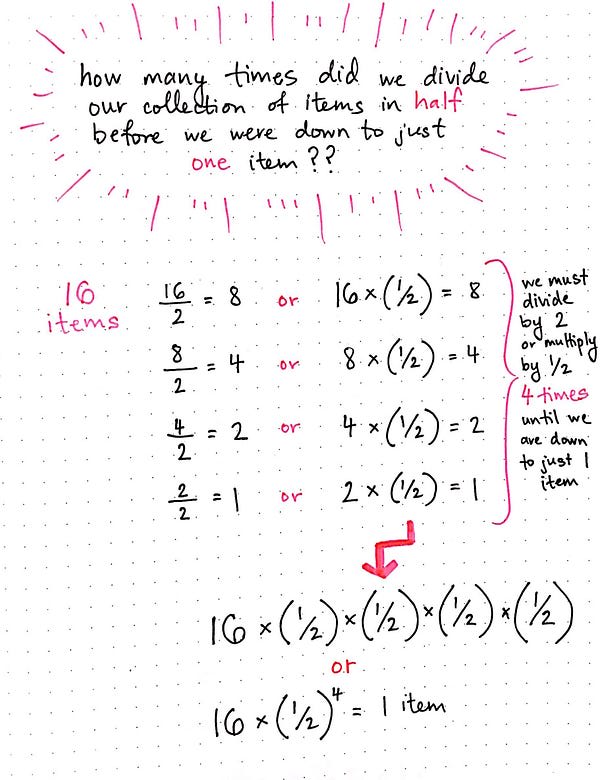 how many times did we divide
our collection of items in half
before we were down to just
one item ??
16
items
16/2 = 8 or 16 × (1/2) = 8
8/2 = 4 or 8 × (1/2) = 4
4/2 = 2 or 4 × (1/2) = 2
2/2 = 1 or 2 × (1/2) = 1
we must
divide
by 2
or multiply
by 1/2
4 times
until we
are down
to just 1
item
16 × (1/2) × (1/2) × (1/2) × (1/2)
or
16 × (1/2)⁴ = 1 item